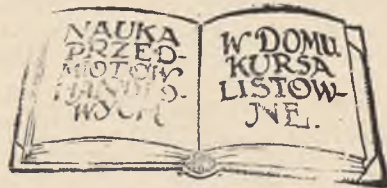 NAUKA
PRZED-
MIOTÓW
HANDLO-
WYCH
W DOMU.
KURSA
LISTOW-
NE.